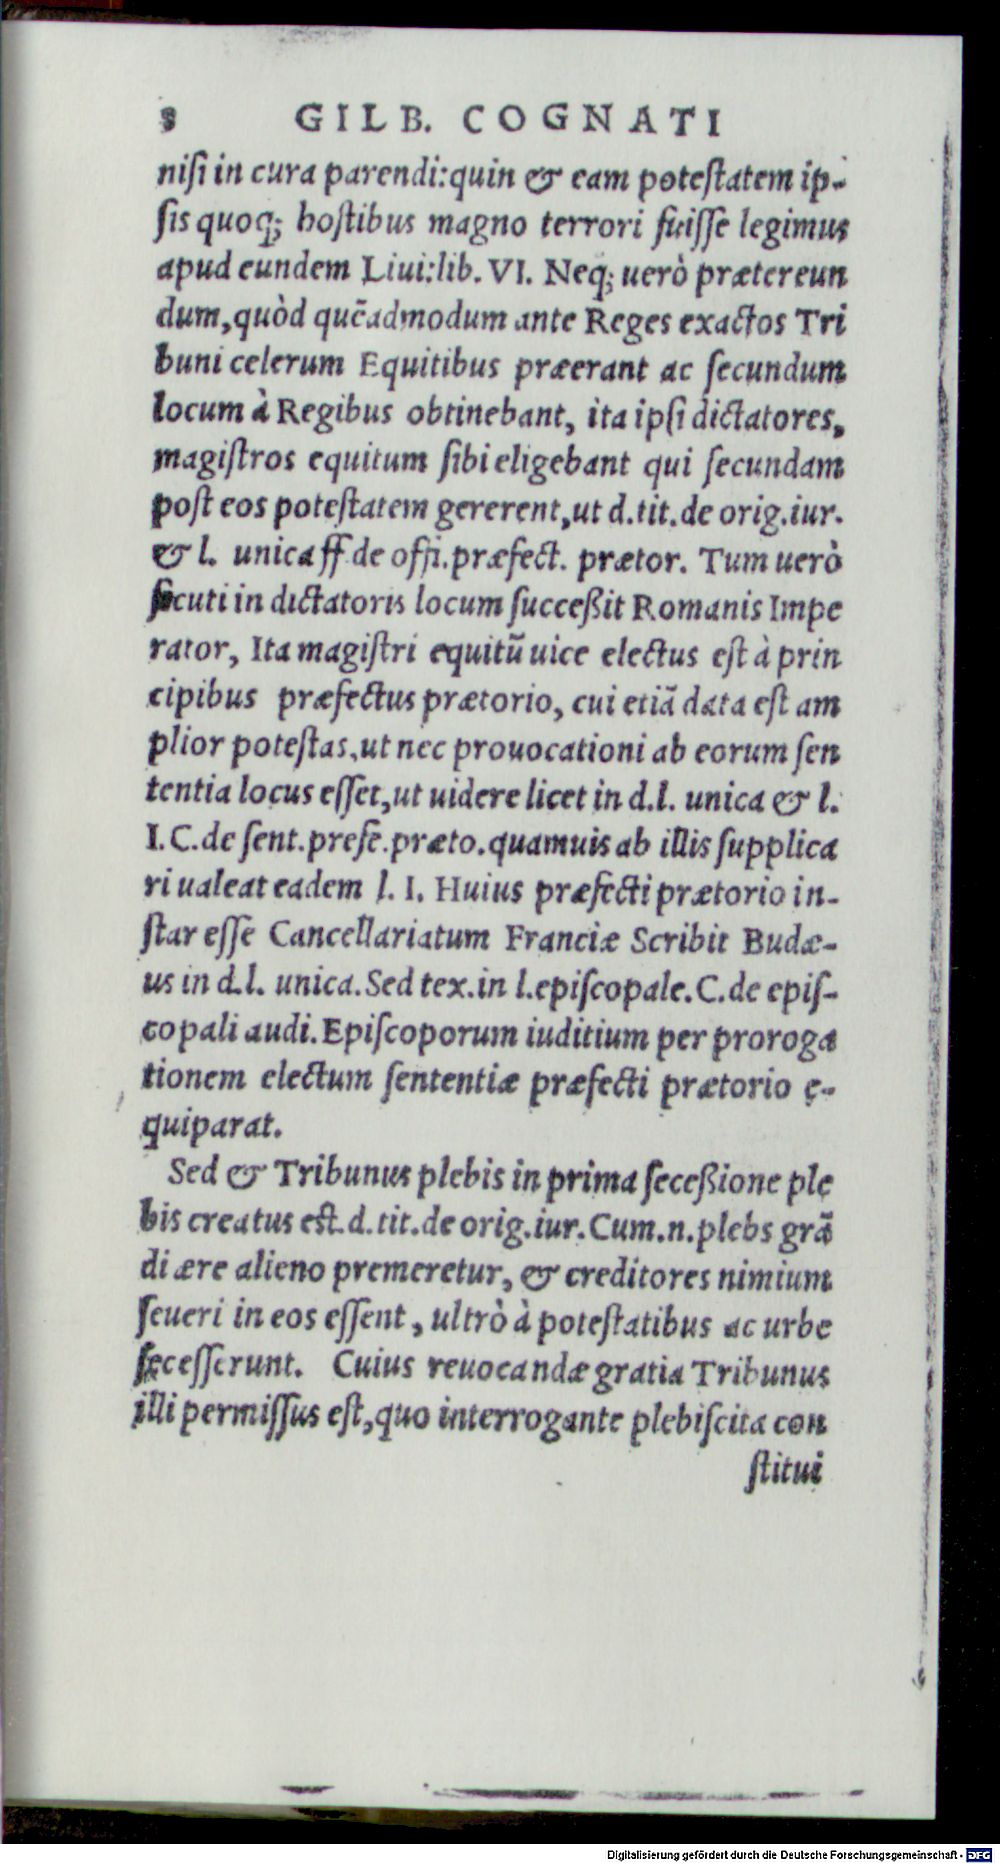 8 GILB. COGNATI
niſi in cura parendi:quin & eam poteſtatem ip-
ſis quoq; hoſtibus magno terrori fuiſſe legimus
apud eundem Liui:lib. VI. Neq; uerò prætereun
dum,quòd quẽadmodum ante Reges exactos Tri
buni celerum Equitibus præerant ac ſecundum
locum à Regibus obtinebant, ita ipſi dictatores,
magiſtros equitum ſibi eligebant qui ſecundam
poſt eos poteſtatem gererent,ut d.tit.de orig.iur.
& l. unica ff de offi.præfect. prætor. Tum uerò
ſicuti in dictatoris locum ſucceßit Romanis Impe
rator, Ita magiſtri equitũ uice electus eſt à prin
cipibus præfectus prætorio, cui etiã data eſt am
plior poteſtas,ut nec prouocationi ab eorum ſen
tentia locus eſſet,ut uidere licet in d.l. unica & l.
I.C.de ſent.prefe.præto.quamuis ab illis ſupplica
ri ualeat eadem l. I. Huius præfecti prætorio in-
ſtar eſſe Cancellariatum Franciæ Scribit Budæ-
us in d.l. unica.Sed tex.in l.epiſcopale.C.de epiſ-
copali audi.Epiſcoporum iuditium per proroga
tionem electum ſententiæ præfecti prætorio ę-
quiparat.
Sed & Tribunus plebis in prima ſeceßione ple
bis creatus eſt.d.tit.de orig.iur.Cum.n.plebs grã
di ære alieno premeretur, & creditores nimium
ſeueri in eos eſſent, ultrò à poteſtatibus ac urbe
ſeceſſerunt. Cuius reuocandæ gratia Tribunus
illi permiſſus eſt,quo interrogante plebiſcita con
ſtitui
Digitalisierung gefördert durch die Deutsche Forschungsgemeinschaft - DFG